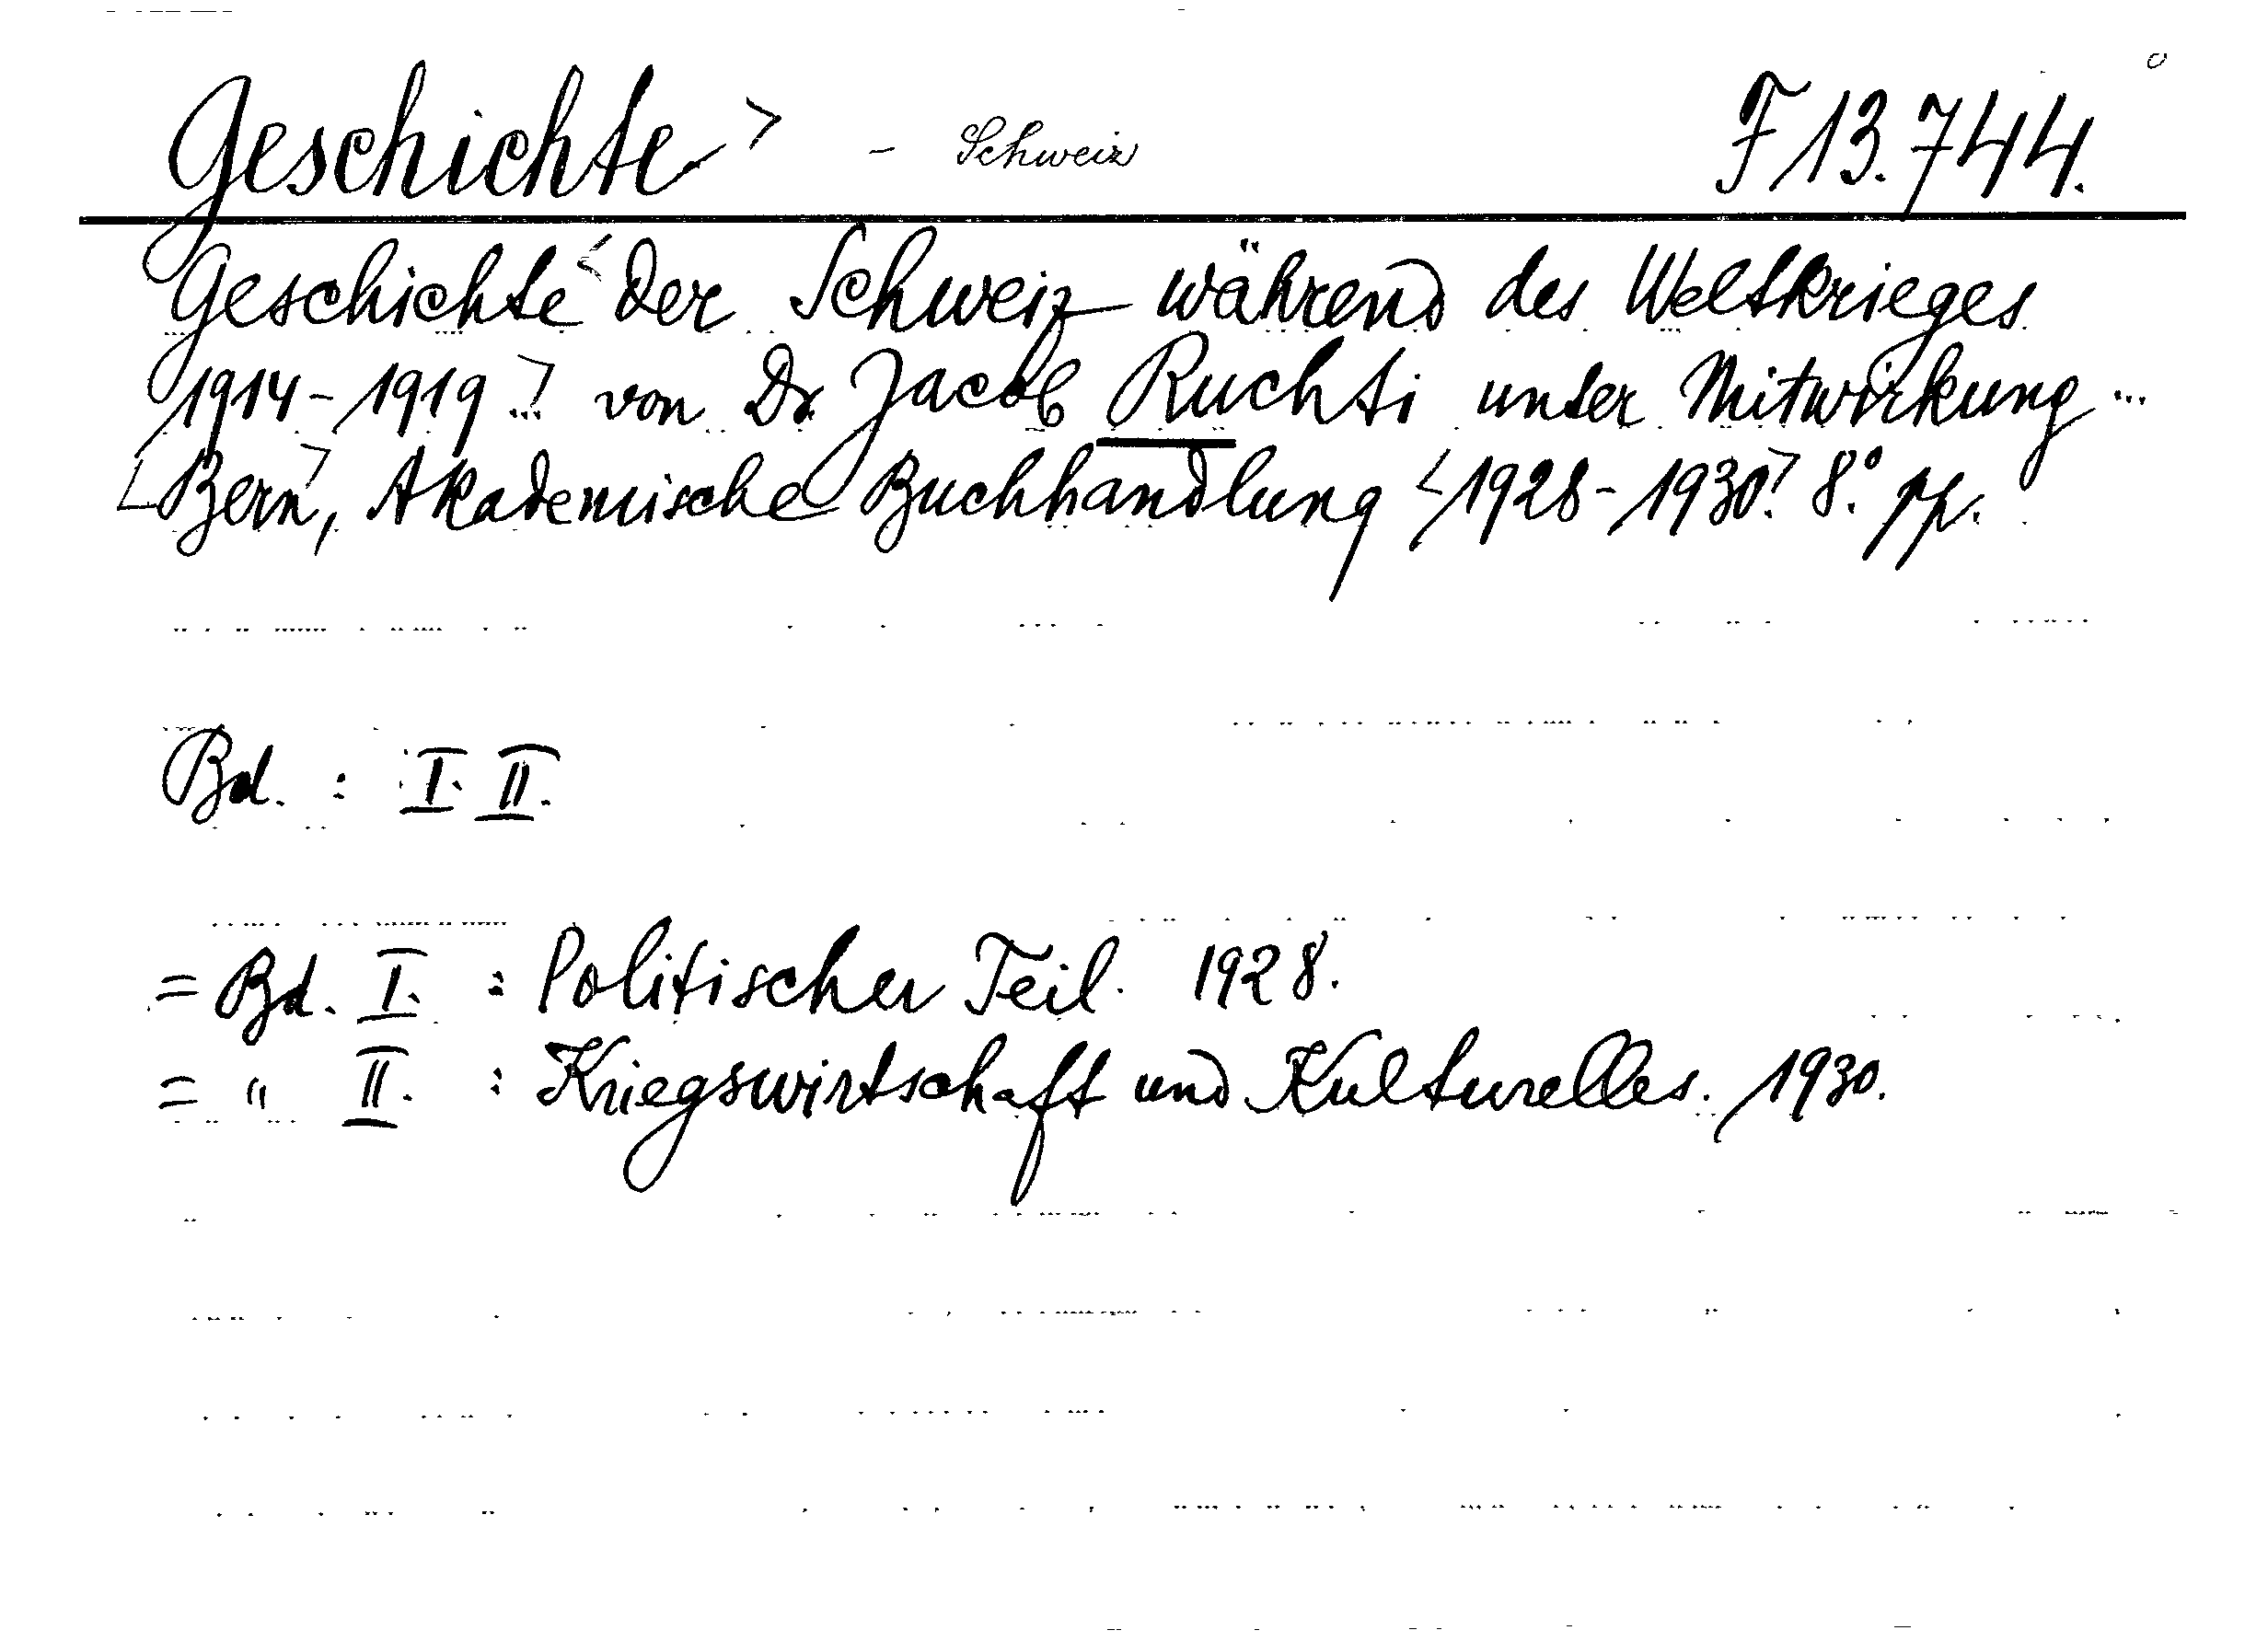 Geschichte > - Schweiz F 13.744.
Geschichte < der Schweiz während des Weltkrieges
1914-1919 >. von Dr. Jacob Ruchti unter Mitwirkung ...
<Bern>, Akademische Buchhandlung <1928-1930>. 8.° pp.
Bd. : I. II.
= Bd. I. : Politischer Teil. 1928.
= " II. : Kriegswirtschaft und Kulturelles. 1930.